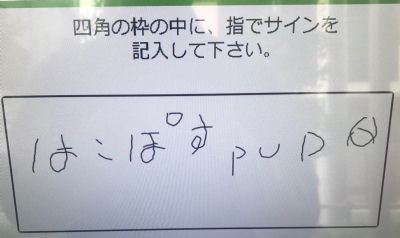 四角の枠の中に、指でサインを
記入して下さい。
はこぽす PUD